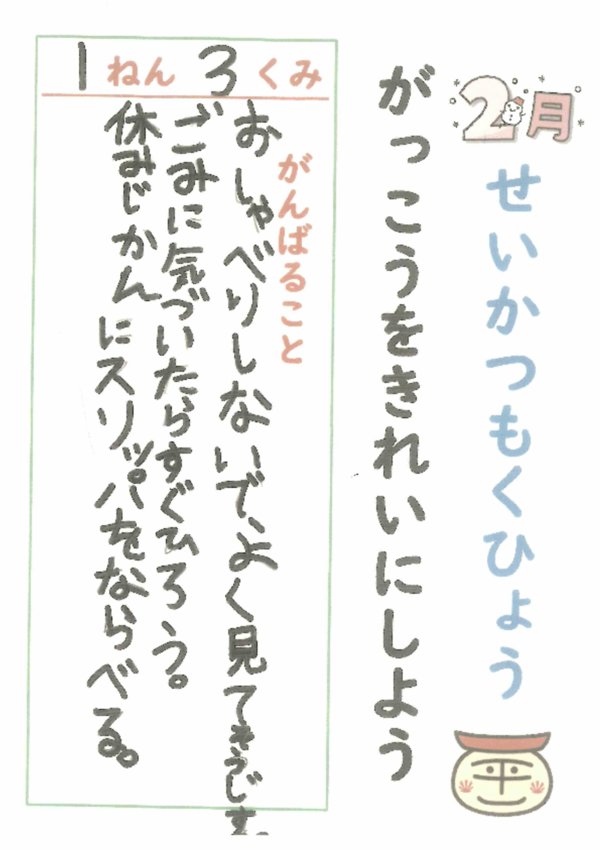 2月
せいかつもくひょう
がっこうをきれいにしよう
1ねん3くみ
がんばること
おしゃべりしないで、よく見てそうじす。
ごみに気づいたらすぐひろう。
休みじかんにスリッパをならべる。